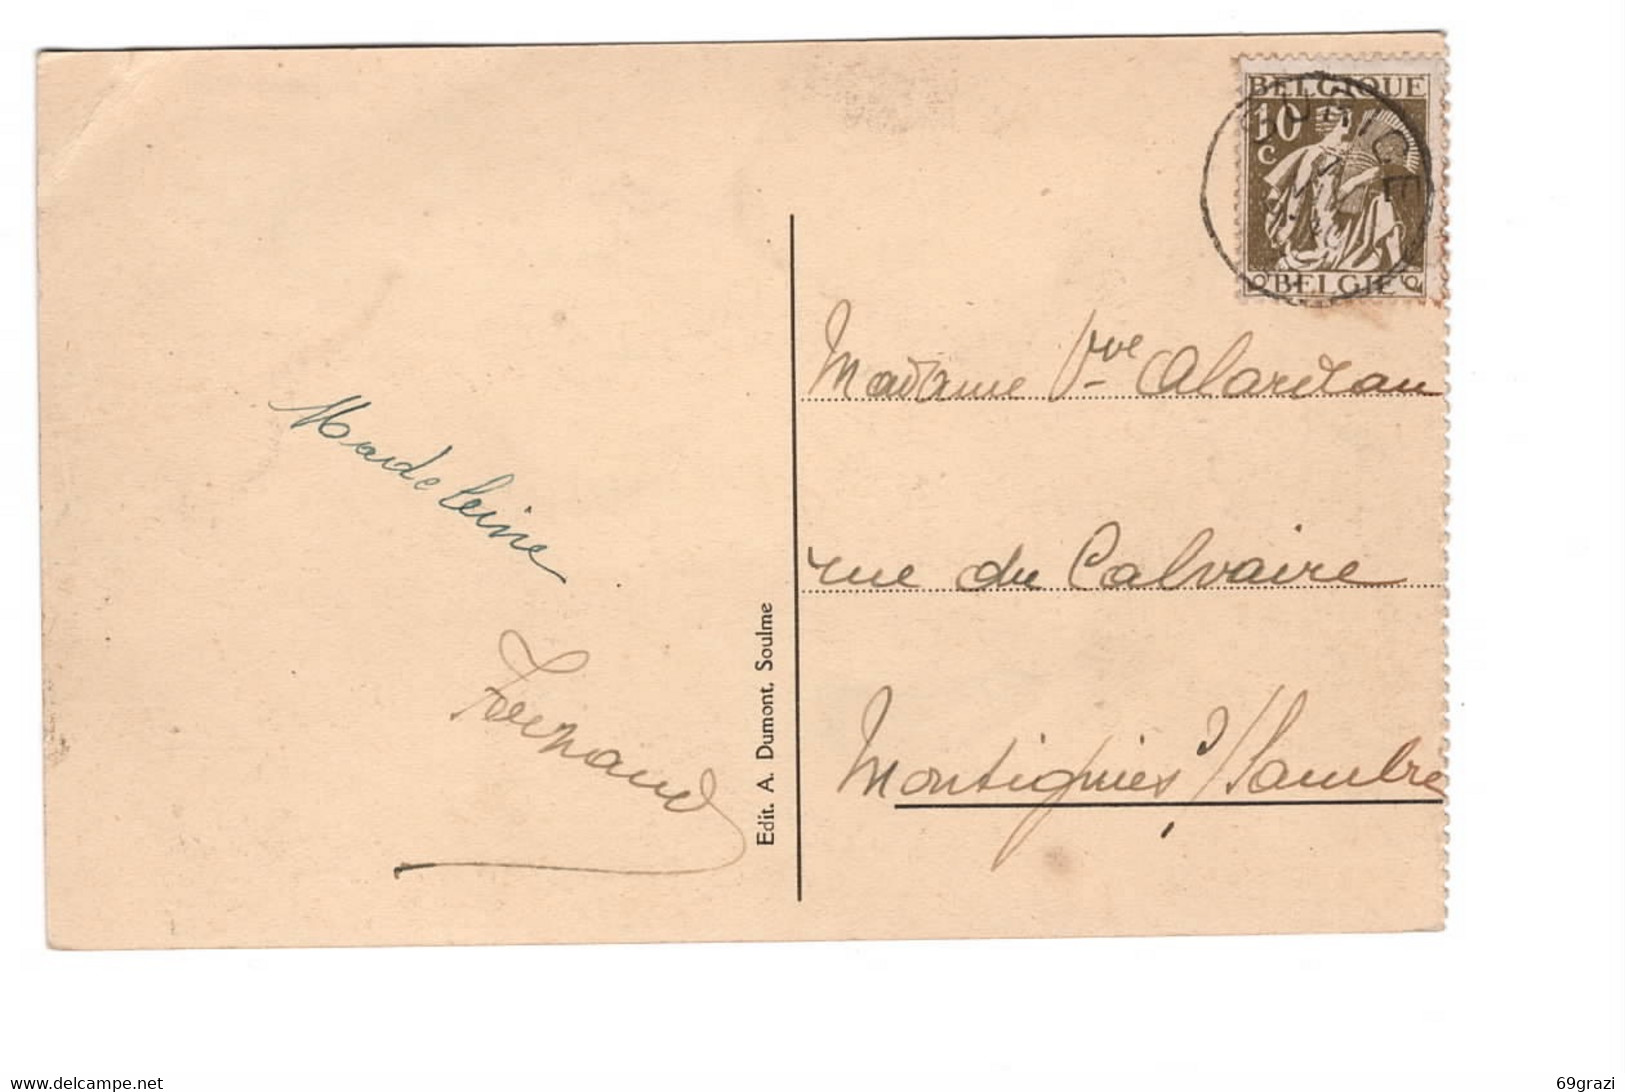 BELGIQUE
10
c
BELGIË
Madame Vve Alardeau
rue du Calvaire
Montignies s/Sambre
Madeleine
Fernand
Edit. A. Dumont, Soulme
www.delcampe.net
69grazi